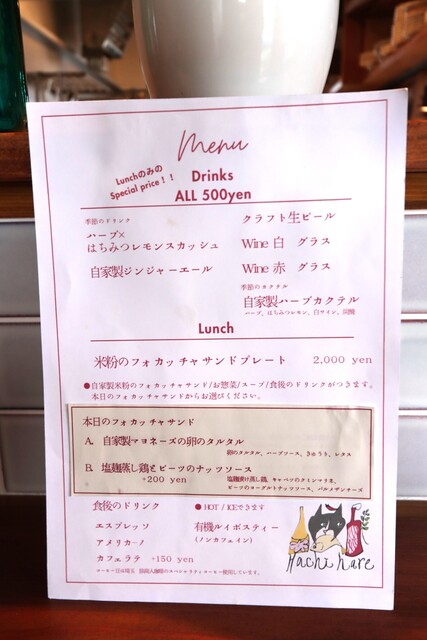 Menu
Lunchのみの
Special price！！
Drinks
ALL 500yen
季節のドリンク
ハーブ×
はちみつレモンスカッシュ
自家製ジンジャーエール
クラフト生ビール
Wine 白 グラス
Wine 赤 グラス
季節のカクテル
自家製ハーブカクテル
ハーブ、はちみつレモン、白ワイン、炭酸
Lunch
米粉のフォカッチャサンドプレート 2,000 yen
●自家製米粉のフォカッチャサンド/お惣菜/スープ/食後のドリンクがつきます。
本日のフォカッチャサンドからお選びください。
本日のフォカッチャサンド
A. 自家製マヨネーズの卵のタルタル
卵のタルタル、ハーブソース、きゅうり、レタス
B. 塩麹蒸し鶏とビーツのナッツソース
+200 yen
塩麹漬け蒸し鶏、キャベツのクミンマリネ、
ビーツのヨーグルトナッツソース、パルメザンチーズ
食後のドリンク
エスプレッソ
アメリカーノ
カフェラテ +150 yen
● HOT / ICEできます
有機ルイボスティー
(ノンカフェイン)
Hachi Kare